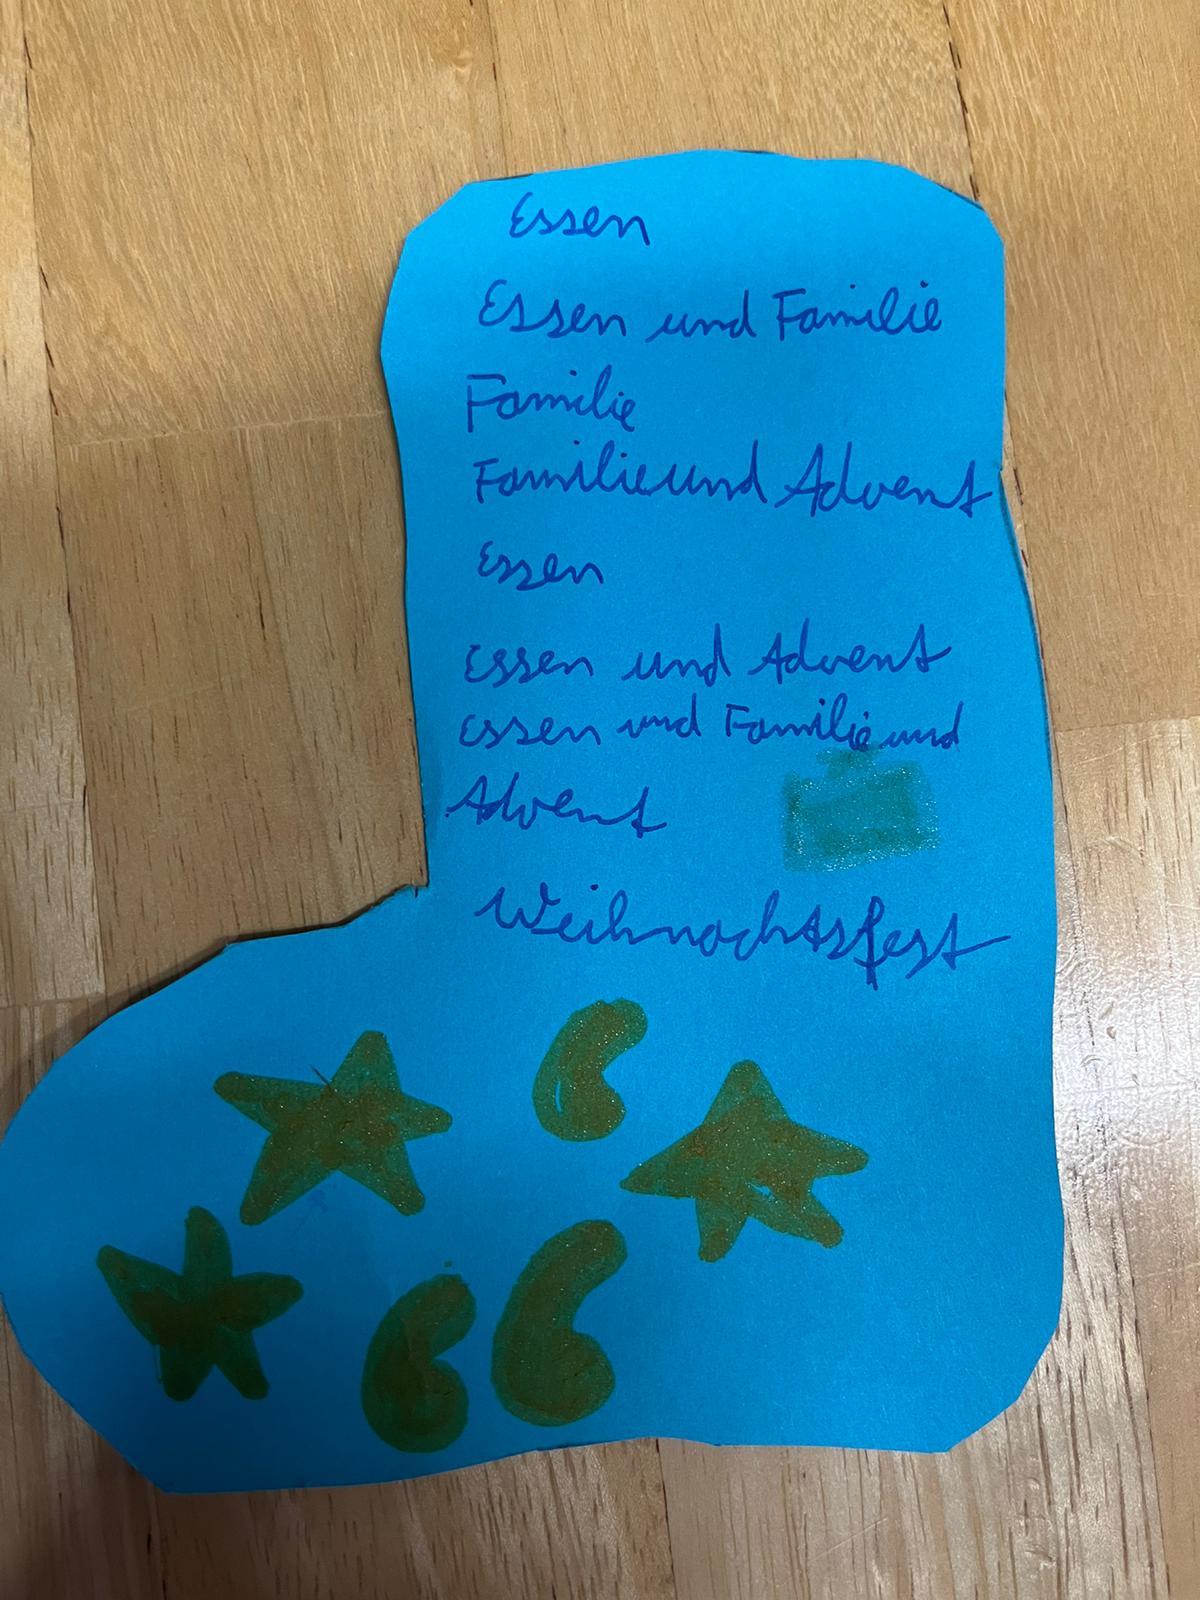 Essen
Essen und Familie
Familie
Familie und Advent
Essen
Essen und Advent
Essen und Familie und
Advent
Weihnachtsfest